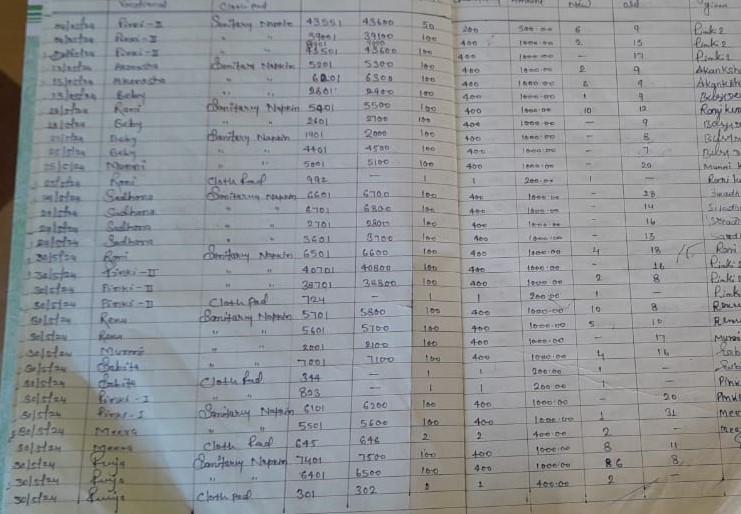 Cloth Pad
Pinki-II Sanitary Napkin 43551 43600 50 200 500.00 6 9 Pinki 2
Pinki-II " " 39001 39100 100 400 1000.00 2 15 Pinki 2
Pinki-II 43501 43600 100 400 1000.00 - 17 Pinki 2
Akanksha Sanitary Napkin 5201 5300 100 400 1000.00 2 9 Akanksha
Akanksha " " 6201 6300 100 400 1000.00 6 9 Akanksha
23/5/24 Beby " " 2801 2900 100 400 1000.00 1 9
Rani Sanitary Napkin 5401 5500 100 400 1000.00 10 12
Beby " " 2601 2700 100 400 1000.00 - 9
Beby Sanitary Napkin 1901 2000 100 400 1000.00 - 8
25/5/24 Beby " " 4401 4500 100 400 1000.00 - 7
25/5/24 Munni " " 5001 5100 100 400 1000.00 - 20 Munni
25/5/24 Rani Cloth Pad 992 - 1 1 200.00 1 -
Sadhana Sanitary Napkin 6601 6700 100 400 1000.00 - 28
Sadhana " " 6701 6800 100 400 1000.00 - 14
Sadhana " " 2701 2800 100 400 1000.00 - 16
Sadhana " " 3601 3700 100 400 1000.00 - 13
30/5/24 Rani Sanitary Napkin 6501 6600 100 400 1000.00 4 18 Rani
30/5/24 Pinki-II " " 40701 40800 100 400 1000.00 - 16 Pinki
30/5/24 Pinki-II " " 38701 38800 100 400 1000.00 2 8 Pinki
30/5/24 Pinki-II Cloth Pad 724 - 1 1 200.00 1 - Pinki
30/5/24 Renu Sanitary Napkin 5701 5800 100 400 1000.00 10 8 Renu
30/5/24 Renu " " 5601 5700 100 400 1000.00 5 10 Renu
30/5/24 Munni " " 2001 2100 100 400 1000.00 - 17 Munni
30/5/24 Sabita " " 7001 7100 100 400 1000.00 4 16 Sab
30/5/24 Sabita Cloth Pad 344 - 1 1 200.00 1 - Sab
30/5/24 Pinki-I " 823 - 1 1 200.00 1 - Pink
30/5/24 Pinki-I Sanitary Napkin 6101 6200 100 400 1000.00 - 20 Pink
30/5/24 Meera " " 5501 5600 100 400 1000.00 1 31 Mee
30/5/24 Meera Cloth Pad 645 646 2 2 400.00 2 - Mee
30/5/24 Sanitary Napkin 7401 7500 100 400 1000.00 8 11
30/5/24 " " 6401 6500 100 400 1000.00 86 8
30/5/24 Cloth Pad 301 302 2 2 400.00 2 -